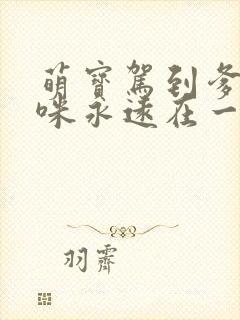 萌寶駕到爹
咪永遠在一
羽霽